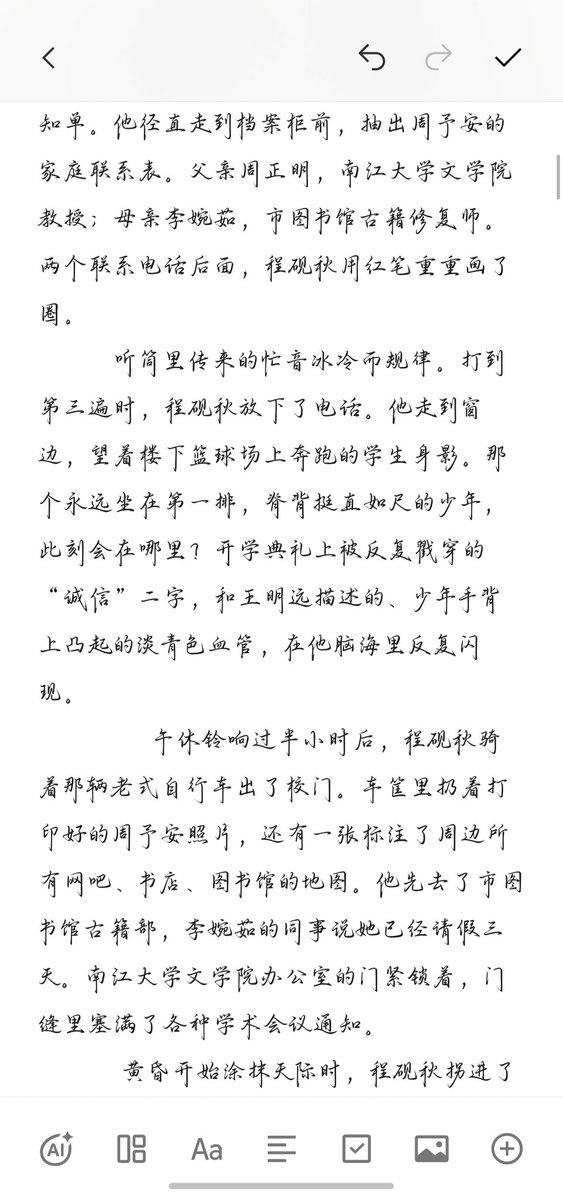 知单。他径直走到档案柜前，抽出周予安的
家庭联系表。父亲周正明，南江大学文学院
教授；母亲李婉茹，市图书馆古籍修复师。
两个联系电话后面，程砚秋用红笔重重画了
圈。
听筒里传来的忙音冰冷而规律。打到
第三遍时，程砚秋放下了电话。他走到窗
边，望着楼下篮球场上奔跑的学生身影。那
个永远坐在第一排，脊背挺直如尺的少年，
此刻会在哪里？开学典礼上被反复戳穿的
“诚信”二字，和王明远描述的、少年手背
上凸起的淡青色血管，在他脑海里反复闪
现。
午休铃响过半小时后，程砚秋骑
着那辆老式自行车出了校门。车筐里扔着打
印好的周予安照片，还有一张标注了周边所
有网吧、书店、图书馆的地图。他先去了市图
书馆古籍部，李婉茹的同事说她已经请假三
天。南江大学文学院办公室的门紧锁着，门
缝里塞满了各种学术会议通知。
黄昏开始涂抹天际时，程砚秋拐进了
AI
Aa